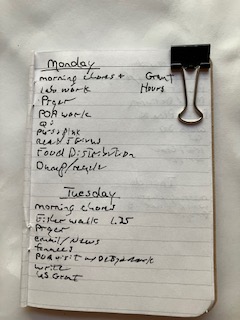 Monday
morning chores + Grant
Lab work Hours
Prayer
POA work
Read & News
Food Distribution
Dump/recycle
Tuesday
morning chores
Fisher walk 1.25
Prayer
email/News
POA visit w/
write
US Grant